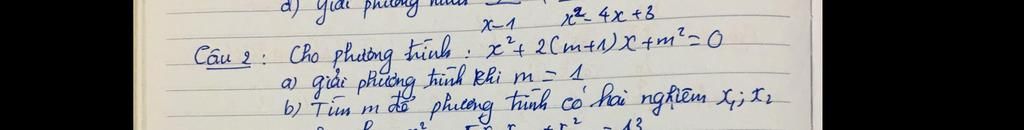 d) giải phương
x-1 x²-4x+3
Câu 2: Cho phương trình: x²+2(m+1)x+m²=0
a) giải phương trình khi m = 1
b) Tìm m để phương trình có hai nghiệm x₁; x₂
= 13